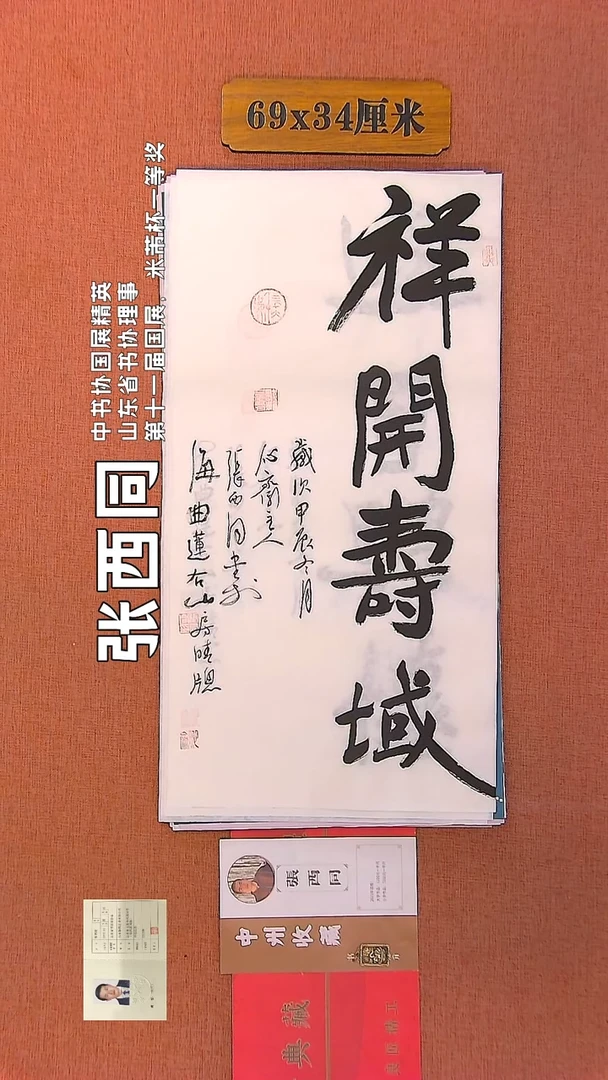 69x34厘米
祥開壽域
歲次甲辰冬月
心齋主人
張西同書於
海曲蓮石山房晴牕
张西同
中书协国展精英
山东省书协理事
第十一届国展，米芾杯一等奖
張西同
中州收藏
典藏